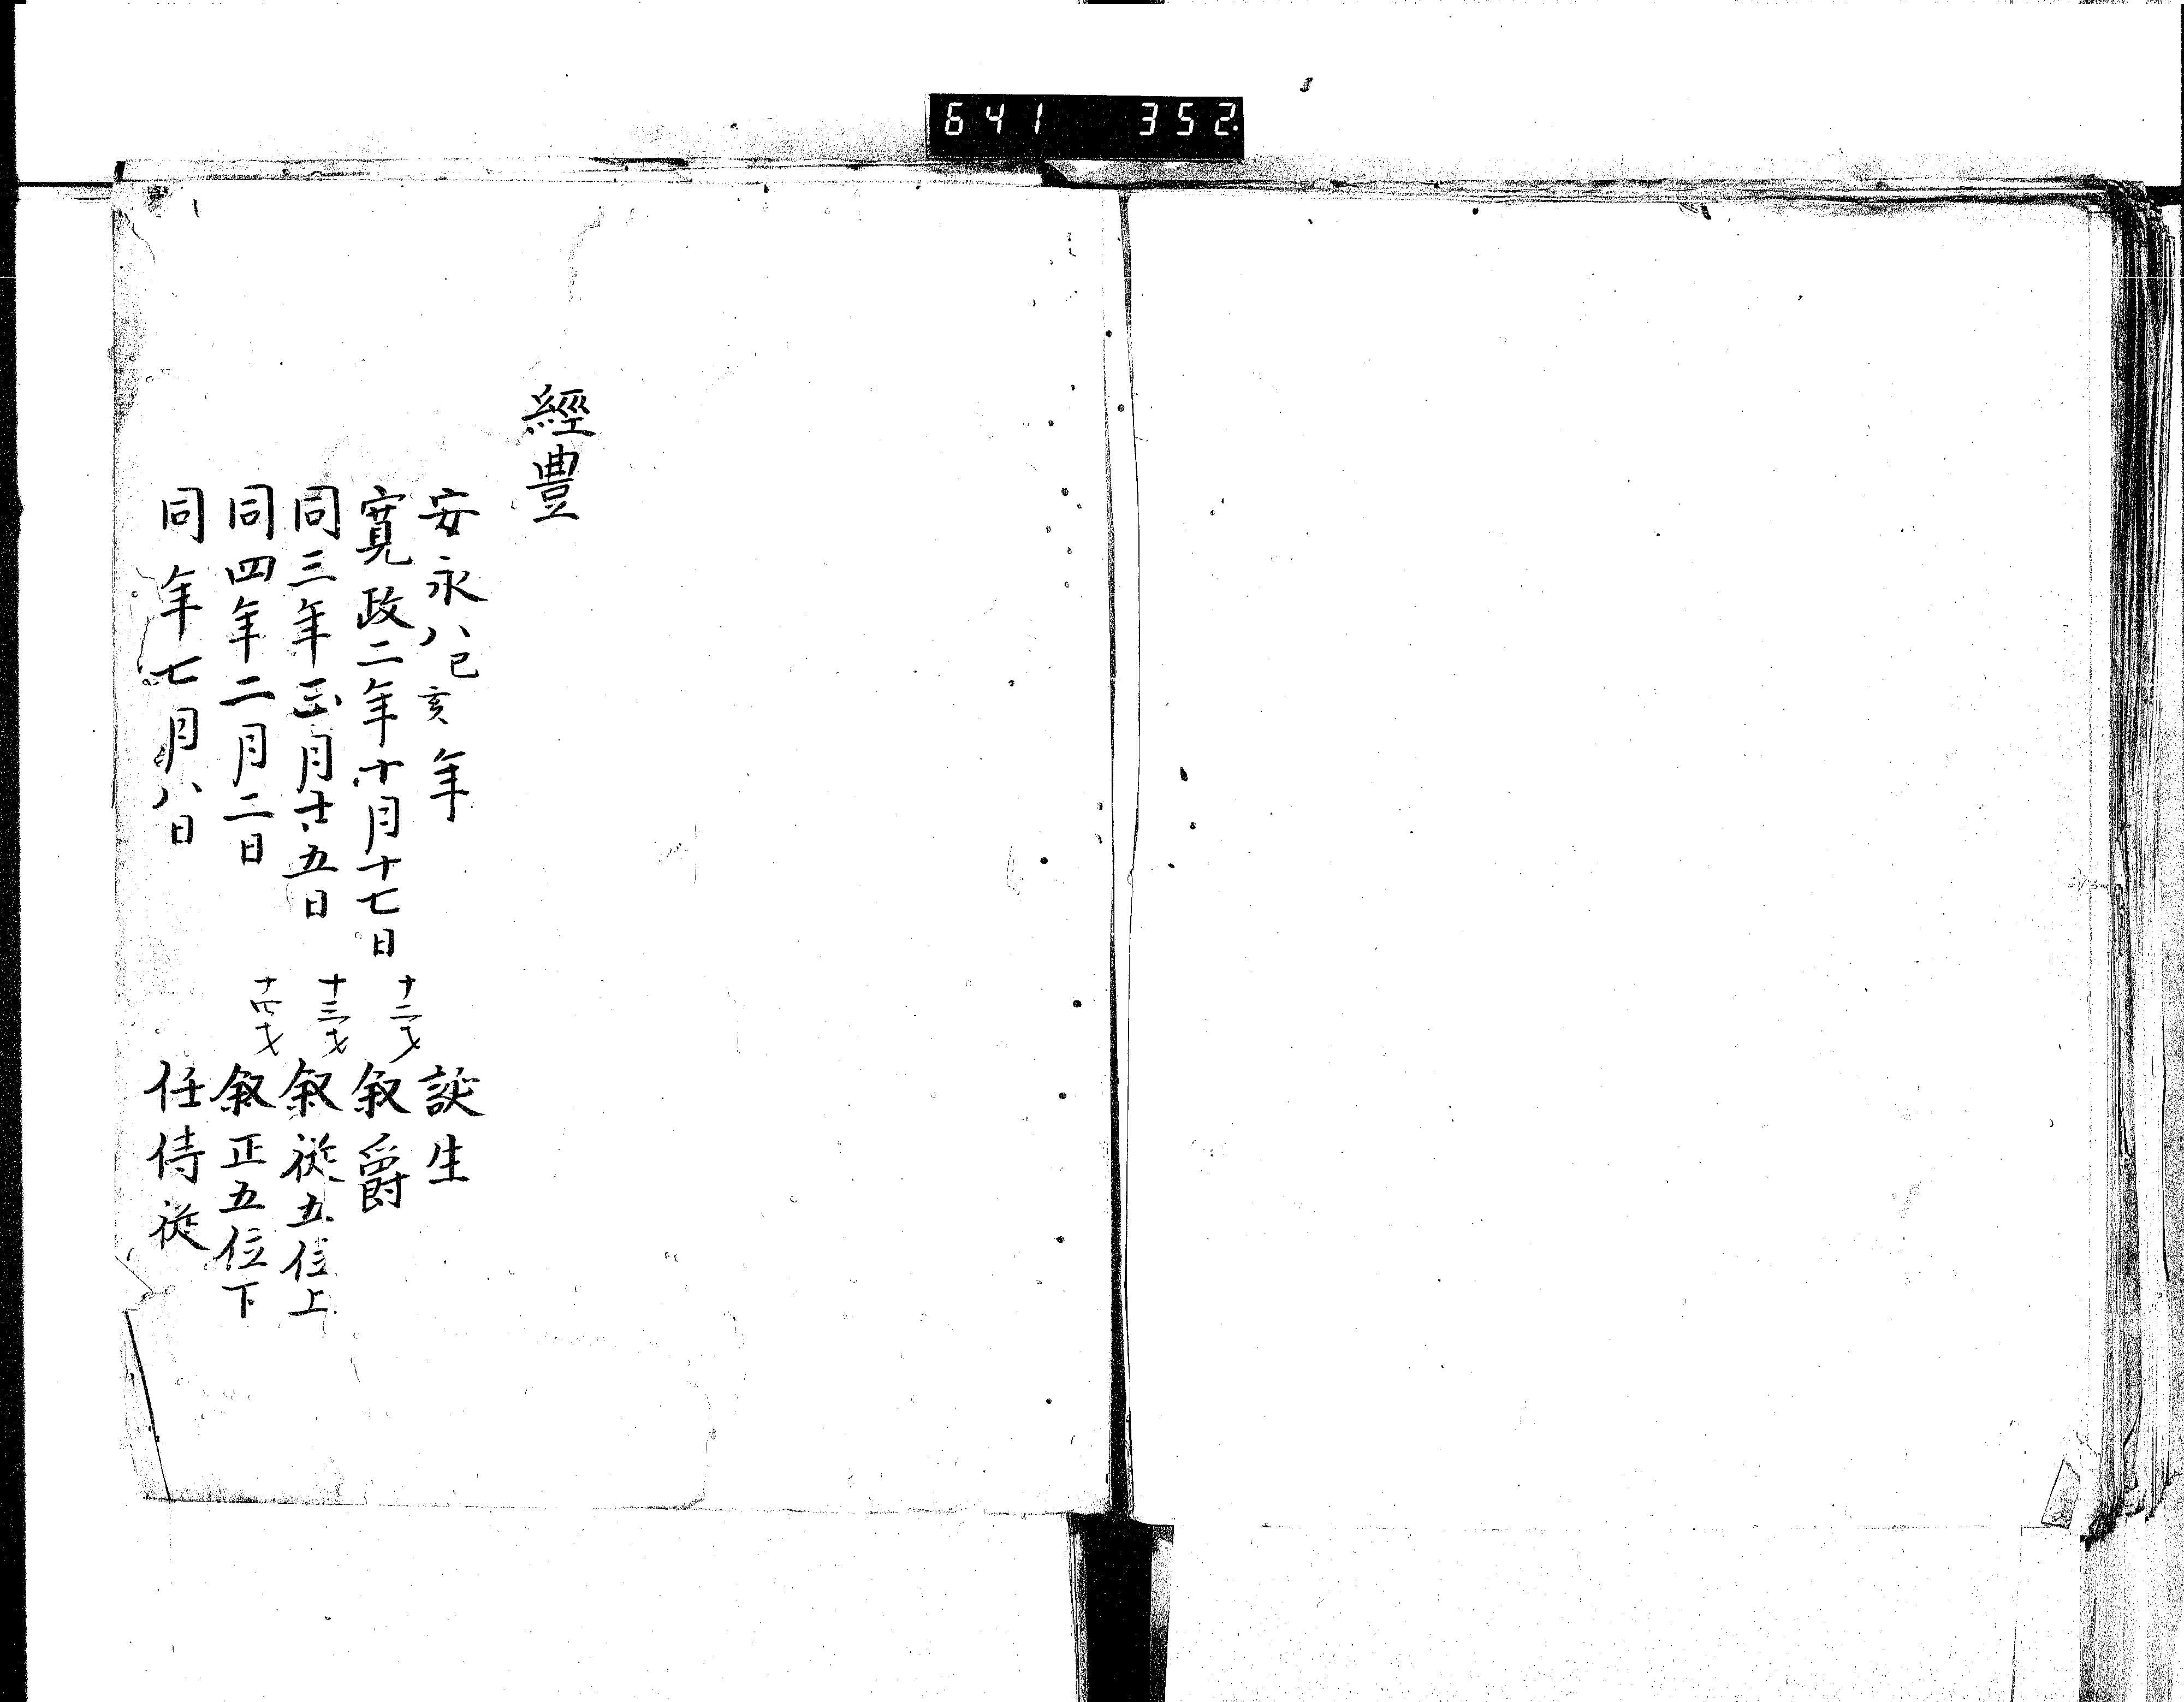 641 352
經豊
安永八己亥年 誕生
寛政二年十月十七日 十二才 叙爵
同三年正月廿五日 十三才 叙従五位上
同四年二月二日 十四才 叙正五位下
同年七月八日 任侍従